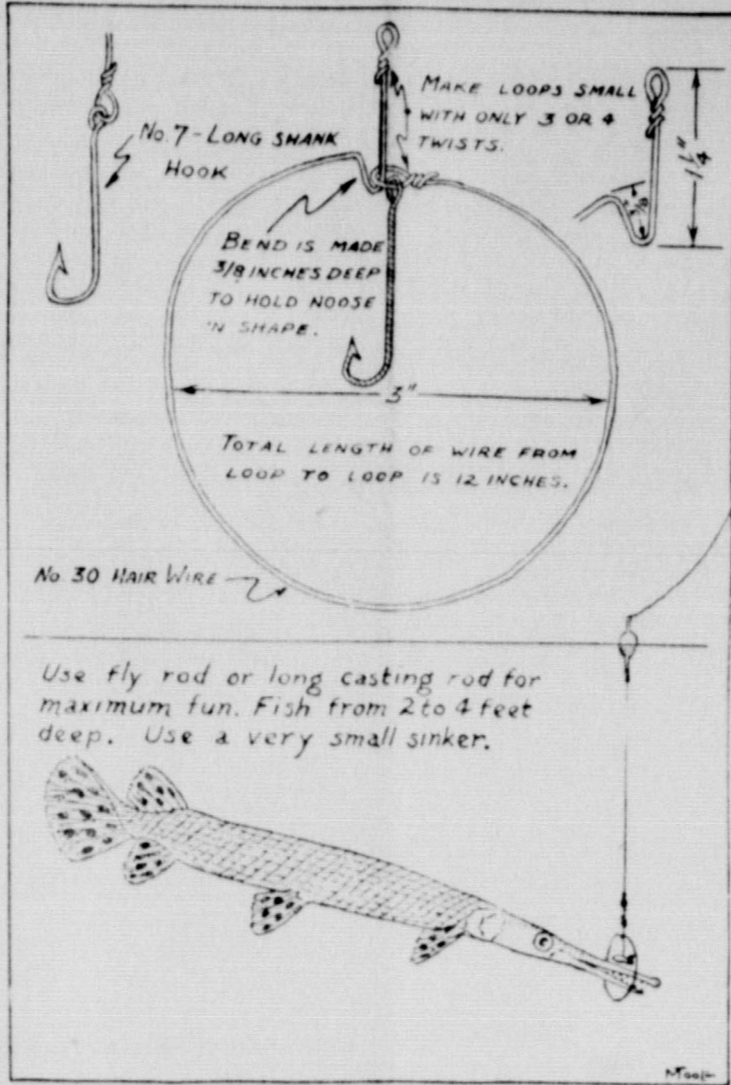 No. 7 - LONG SHANK
HOOK
MAKE LOOPS SMALL
WITH ONLY 3 OR 4
TWISTS.
1 1/4"
3/8
BEND IS MADE
3/8 INCHES DEEP
TO HOLD NOOSE
'N SHAPE.
3"
TOTAL LENGTH OF WIRE FROM
LOOP TO LOOP IS 12 INCHES.
No. 30 HAIR WIRE
Use fly rod or long casting rod for
maximum fun. Fish from 2 to 4 feet
deep. Use a very small sinker.